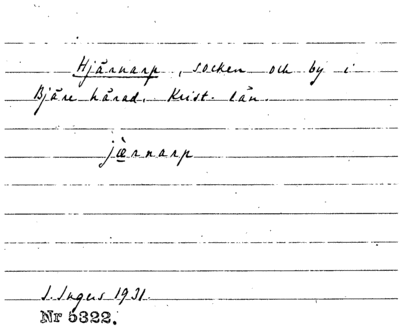 Hjärnarp, socken och by i
Bjäre härad. Krist. län.
jæ̀rnarp
I. Ingers 1931.
Nr 5322.